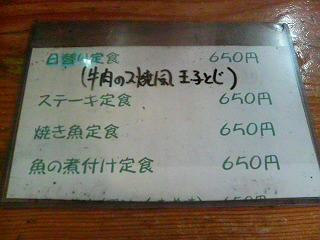 日替り定食 650円
(牛肉のス焼風玉子とじ)
ステーキ定食 650円
焼き魚定食 650円
魚の煮付け定食 650円
650円